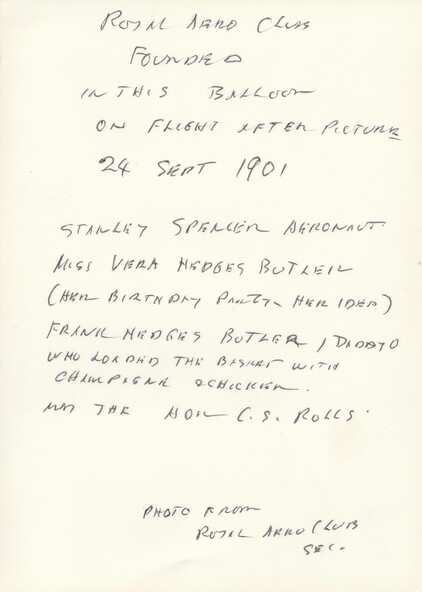 ROYAL AERO CLUB
FOUNDED
IN THIS BALLOON
ON FLIGHT AFTER PICTURE
24 SEPT 1901
STANLEY SPENCER AERONAUT.
MISS VERA HEDGES BUTLER
(HER BIRTHDAY PARTY - HER IDEA)
FRANK HEDGES BUTLER / DADDY
WHO LOADED THE BASKET WITH
CHAMPAGNE & CHICKEN.
THE HON C.S. ROLLS.
PHOTO FROM
ROYAL AERO CLUB
SEC.